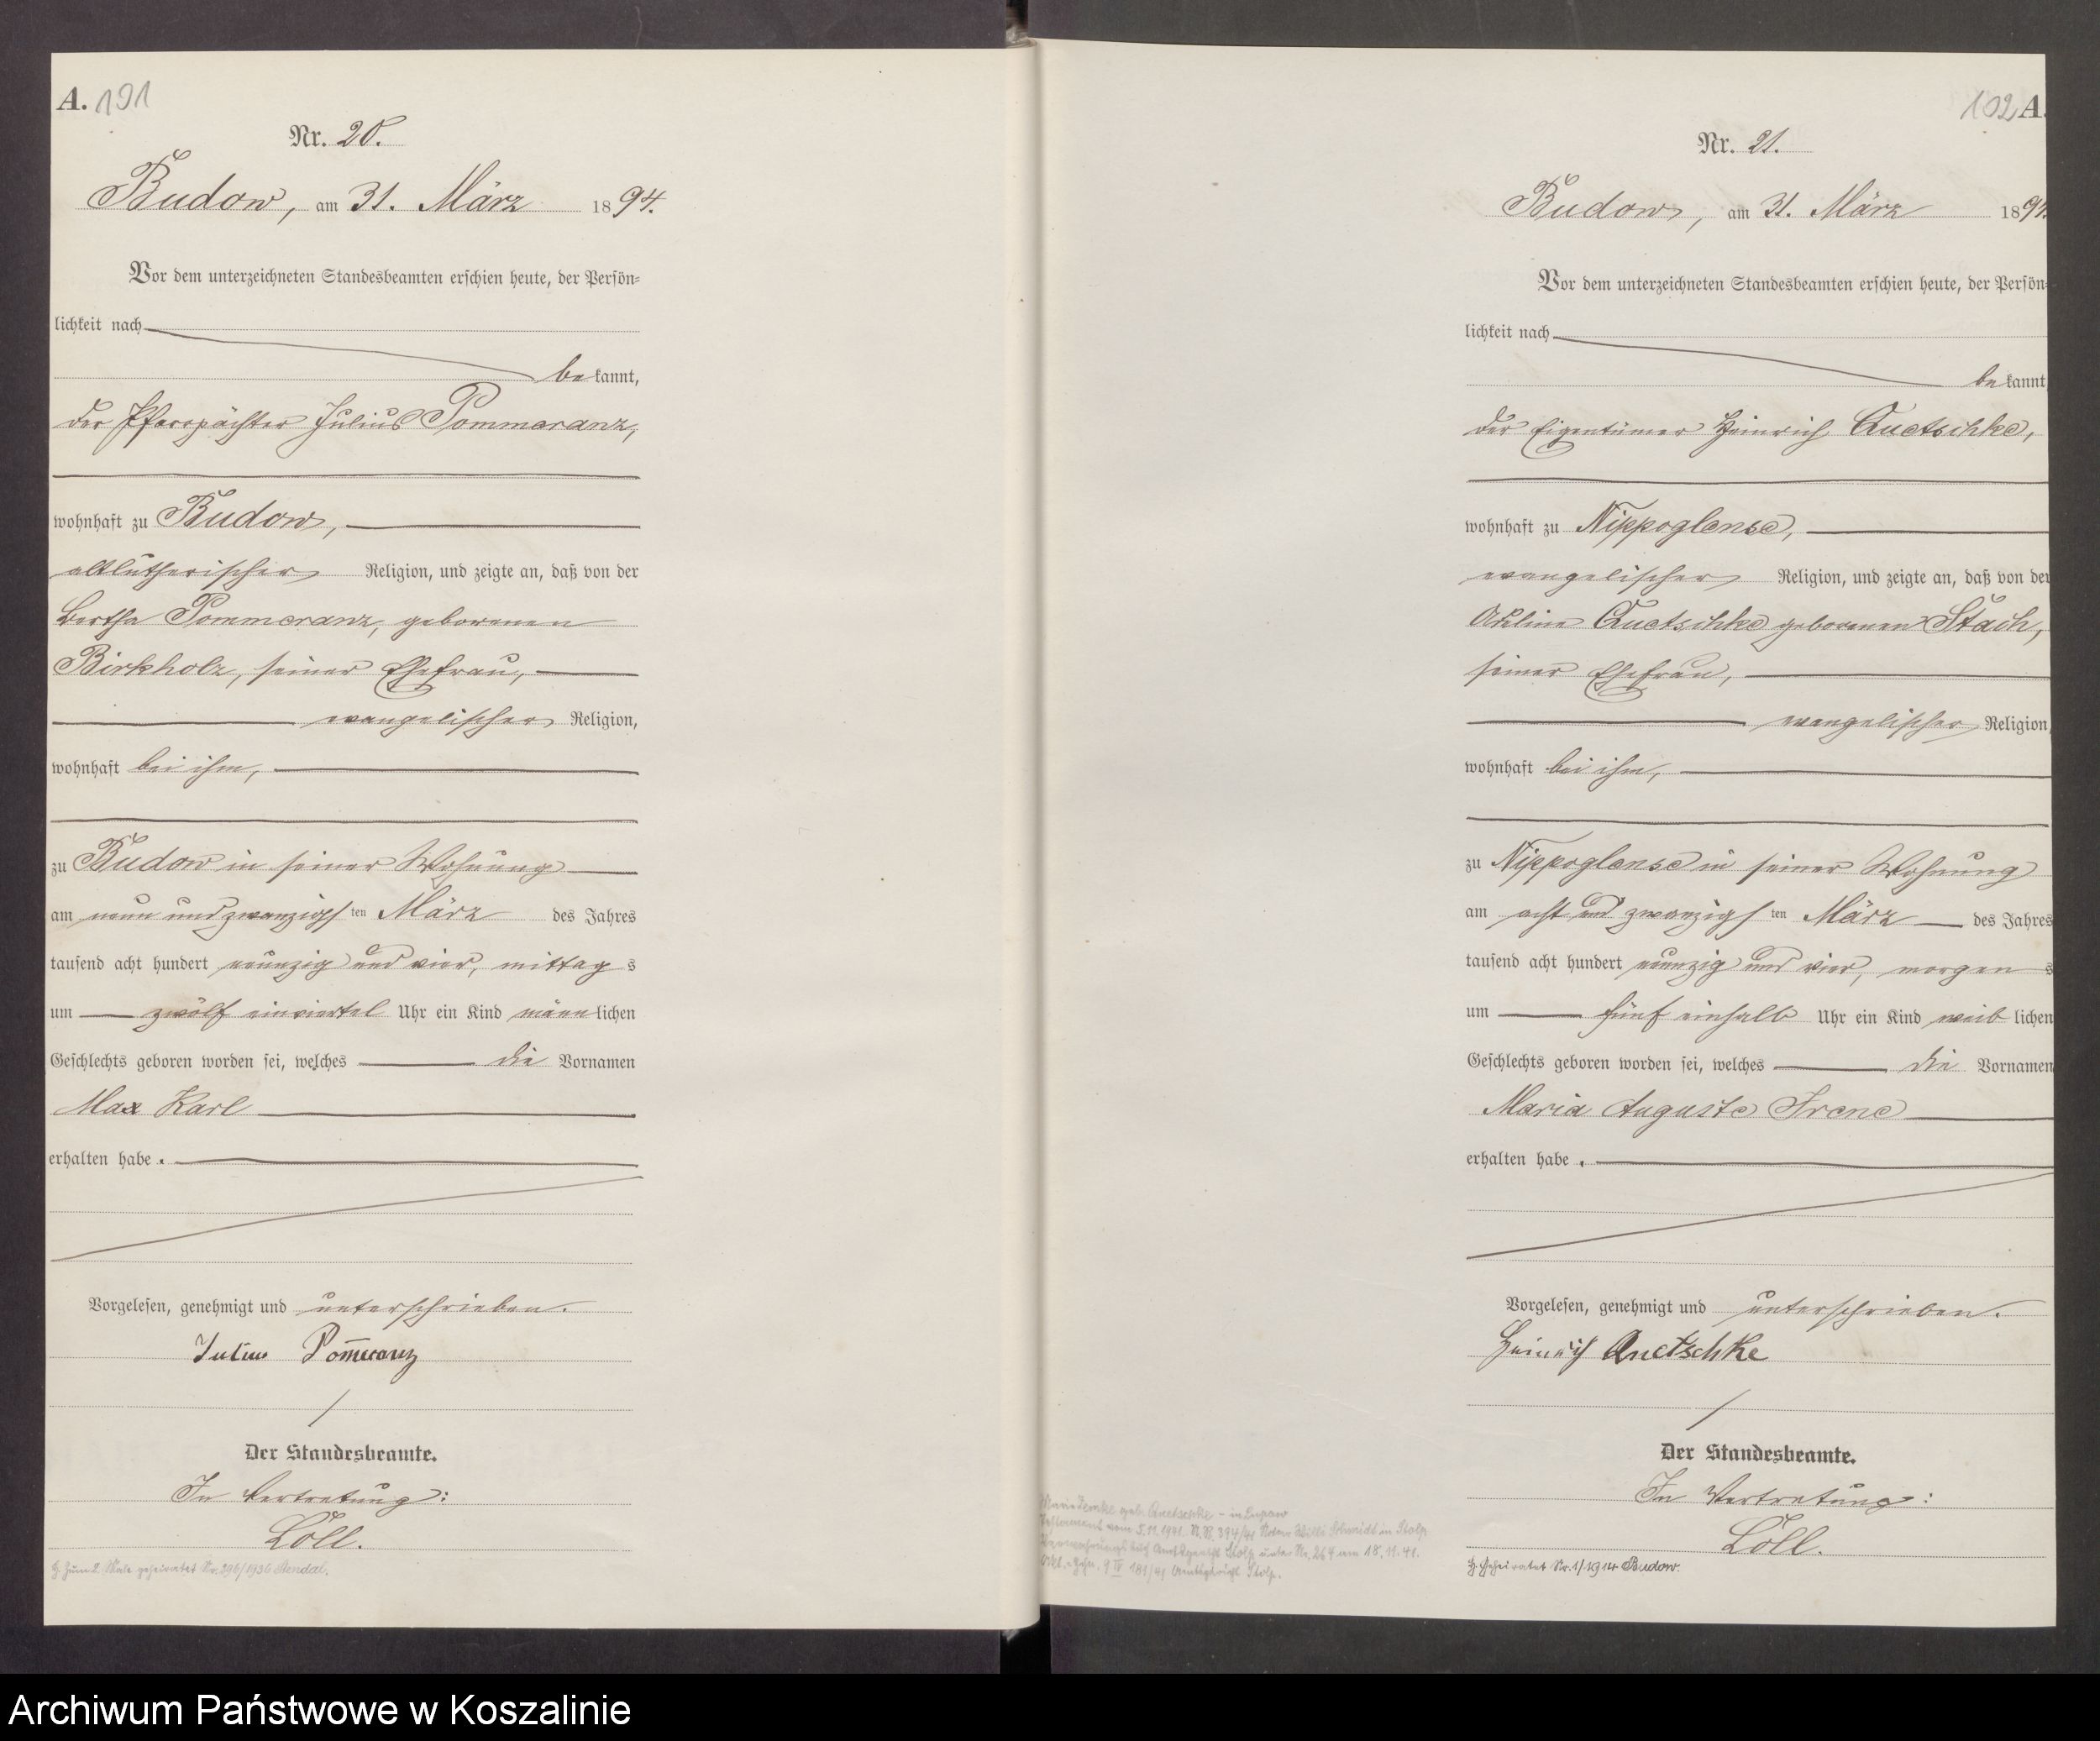 A. 191
Nr. 20.
Budow, am 31. März 1894.
Vor dem unterzeichneten Standesbeamten erschien heute, der Persön-
lichkeit nach
bekannt,
der Pfarrpächter Julius Pommeranz,
wohnhaft zu Budow,
altlutherischer Religion, und zeigte an, daß von der
Bertha Pommeranz, geborenen
Birkholz, seiner Ehefrau,
evangelischer Religion,
wohnhaft bei ihm,
zu Budow in seiner Wohnung
am neun und zwanzigsten März des Jahres
tausend acht hundert neunzig und vier, mittags
um zwölf einviertel Uhr ein Kind männlichen
Geschlechts geboren worden sei, welches die Vornamen
Max Karl
erhalten habe.
Vorgelesen, genehmigt und unterschrieben.
Julius Pom̅eranz
Der Standesbeamte.
In Vertretung:
Löll.
Zum 2. Male geheiratet Nr. 396/1936 Stendal.
102 A.
Nr. 21.
Budow, am 31. März 1894.
Vor dem unterzeichneten Standesbeamten erschien heute, der Persön-
lichkeit nach
bekannt
der Eigentümer Heinrich Quetschke,
wohnhaft zu Nippoglense,
evangelischer Religion, und zeigte an, daß von der
Quetschke geborenen Stach,
seiner Ehefrau,
evangelischer Religion,
wohnhaft bei ihm,
zu Nippoglense in seiner Wohnung
am acht und zwanzigsten März des Jahres
tausend acht hundert neunzig und vier, morgens
um fünf einhalb Uhr ein Kind weiblichen
Geschlechts geboren worden sei, welches die Vornamen
Maria Auguste Irene
erhalten habe.
Vorgelesen, genehmigt und unterschrieben.
Heinrich Quetschke
Der Standesbeamte.
In Vertretung:
Löll.
Geheiratet Nr. 1/1914 Budow.
geb. Quetschke - in Lupow
Testament vom 5.11.1941. 394/41 Notar Willi Schmidt in Stolp
Amtsgericht Stolp unter Nr. 264 am 18.11.41.
9 IV 181/41 Amtsgericht Stolp.
Archiwum Państwowe w Koszalinie